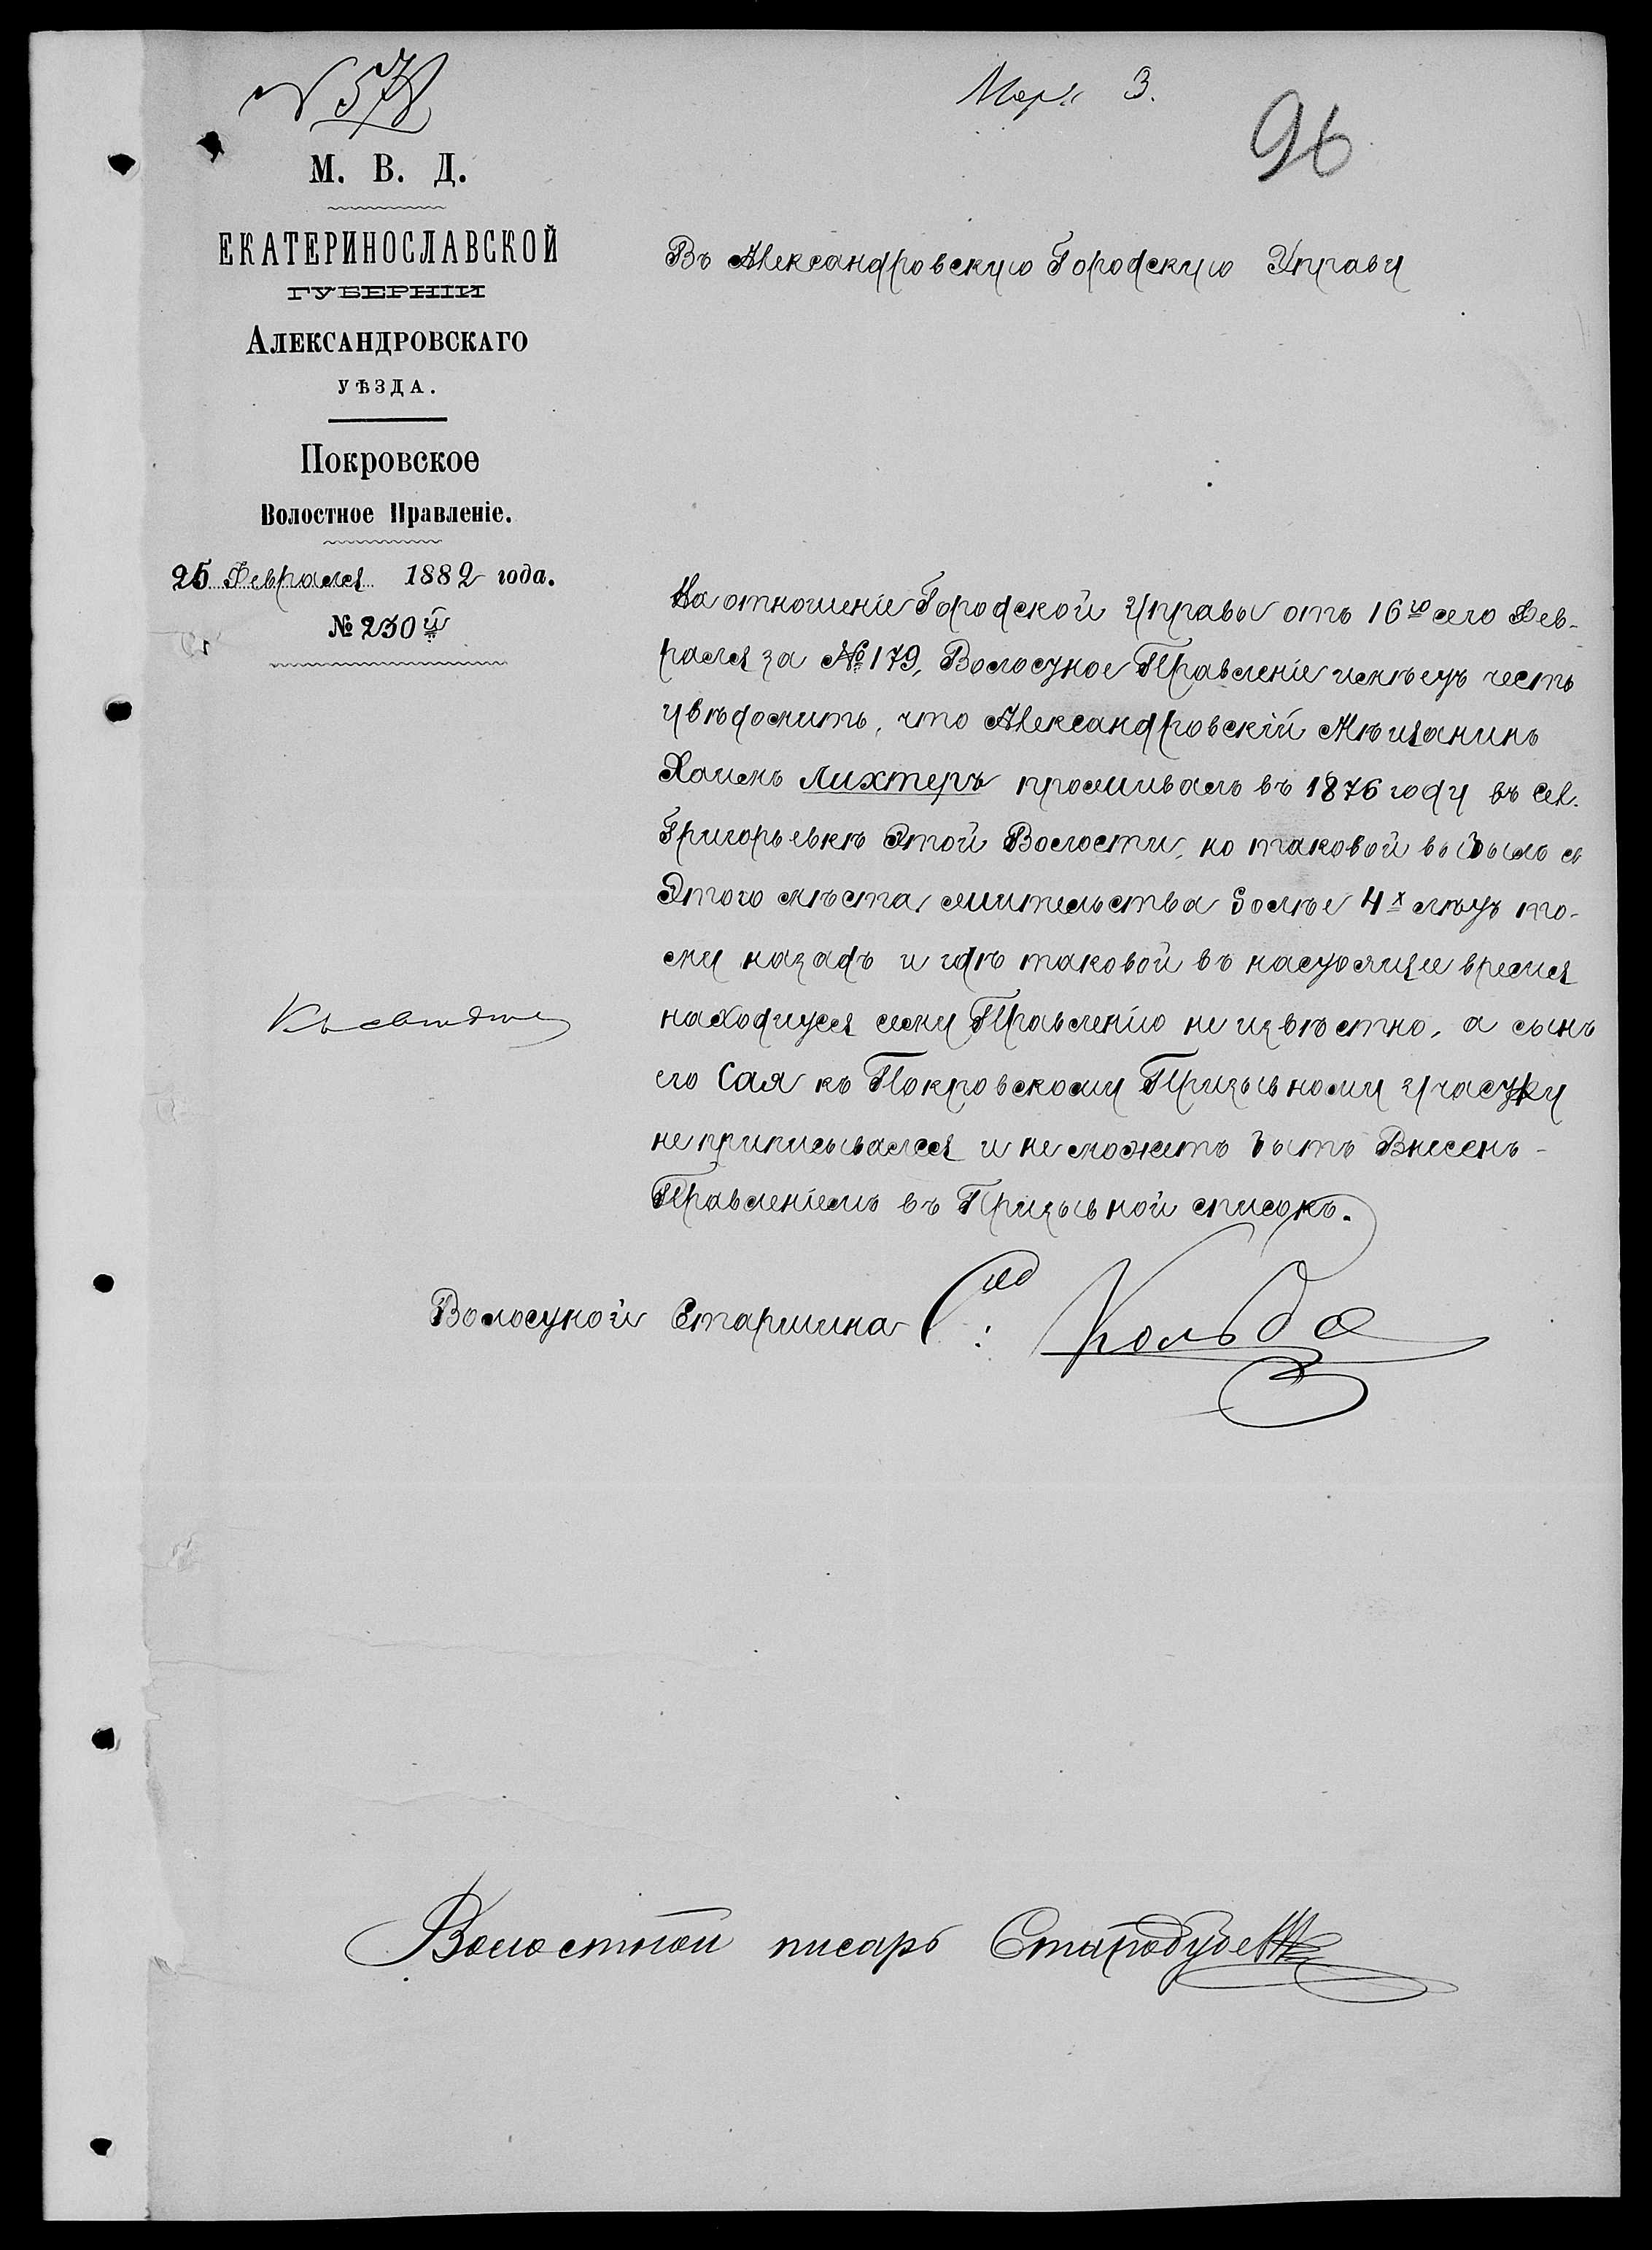 № 578
Мар. 3.
96
М. В. Д.
ЕКАТЕРИНОСЛАВСКОЙ
ГУБЕРНІИ
АЛЕКСАНДРОВСКАГО
УѢЗДА.
Покровское
Волостное Правленіе.
25 Февраля 1882 года.
№ 230й
Въ Александровскую Городскую Управу
На отношеніе Городской Управы отъ 16го сего Фев-
раля за № 179, Волостное Правленіе имѣетъ честь
увѣдомить, что Александровскій Мѣщанинъ
Хаимъ Лихтеръ проживалъ въ 1876 году въ сел.
Григорьевкѣ Этой Волости, но таковой выбылъ съ
Этого мѣста жительства болѣе 4х лѣтъ то-
му назадъ и гдѣ таковой въ настоящее время
находится сему Правленію не извѣстно, а сынъ
его Сая къ Покровскому Призывному участку
не приписывался и не можетъ быть Внесенъ
Правленіемъ въ Призывной списокъ.
Волостной Старшина Кольда
Волостной писарь